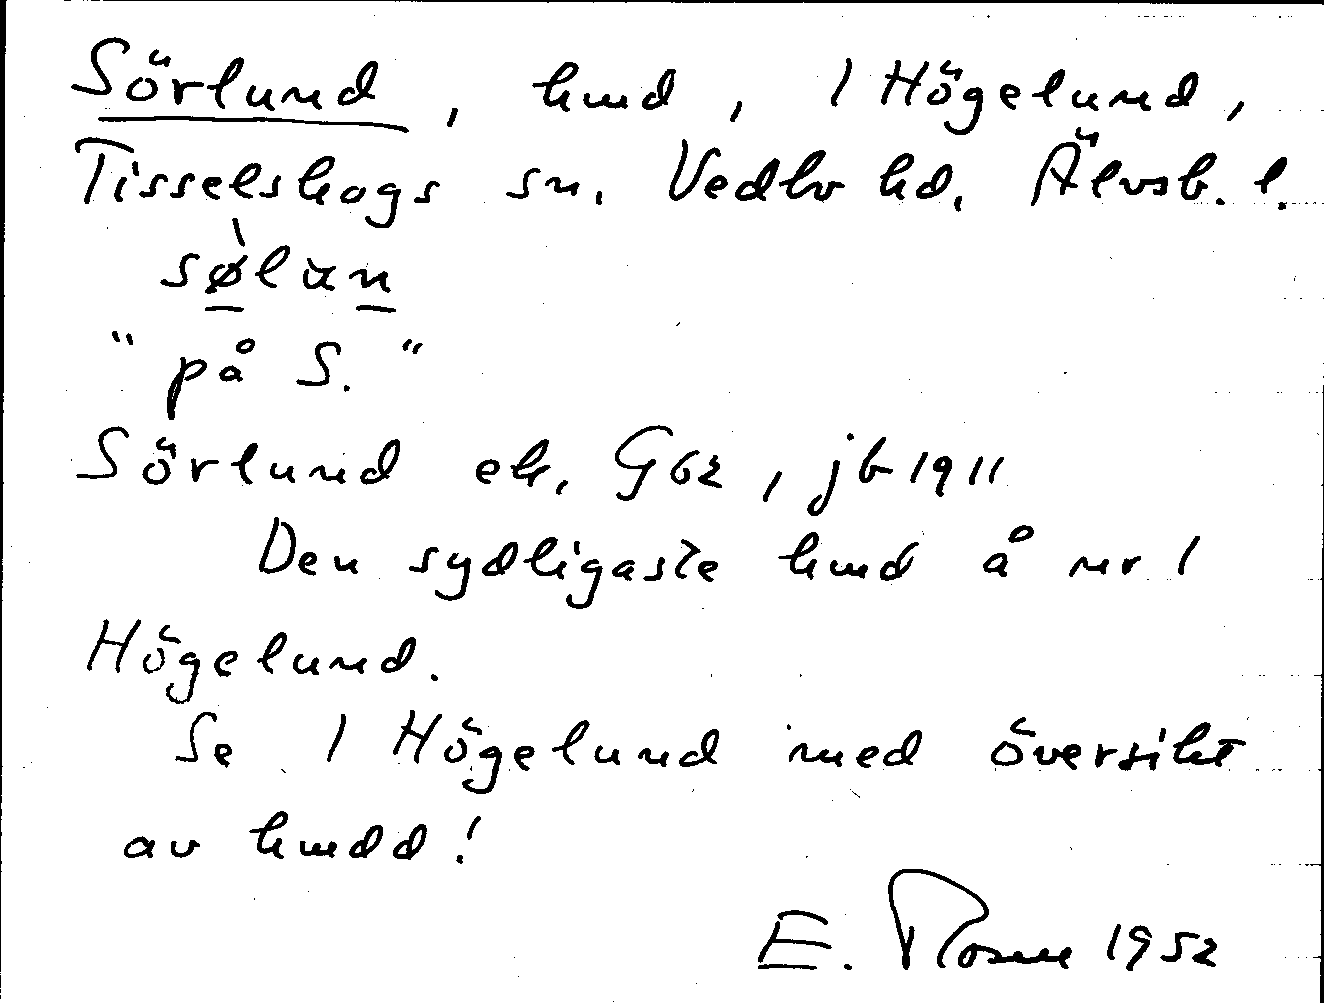 Sörlund, hmd, 1 Högelund,
Tisselskogs sn. Vedbo hd. Älvsb. l.
sø̀lun
"på S."
Sörlund ek. G62, jb 1911
Den sydligaste hmd å nr 1
Högelund.
Se 1 Högelund med översikt
av hmdd!
E. Rosell 1952